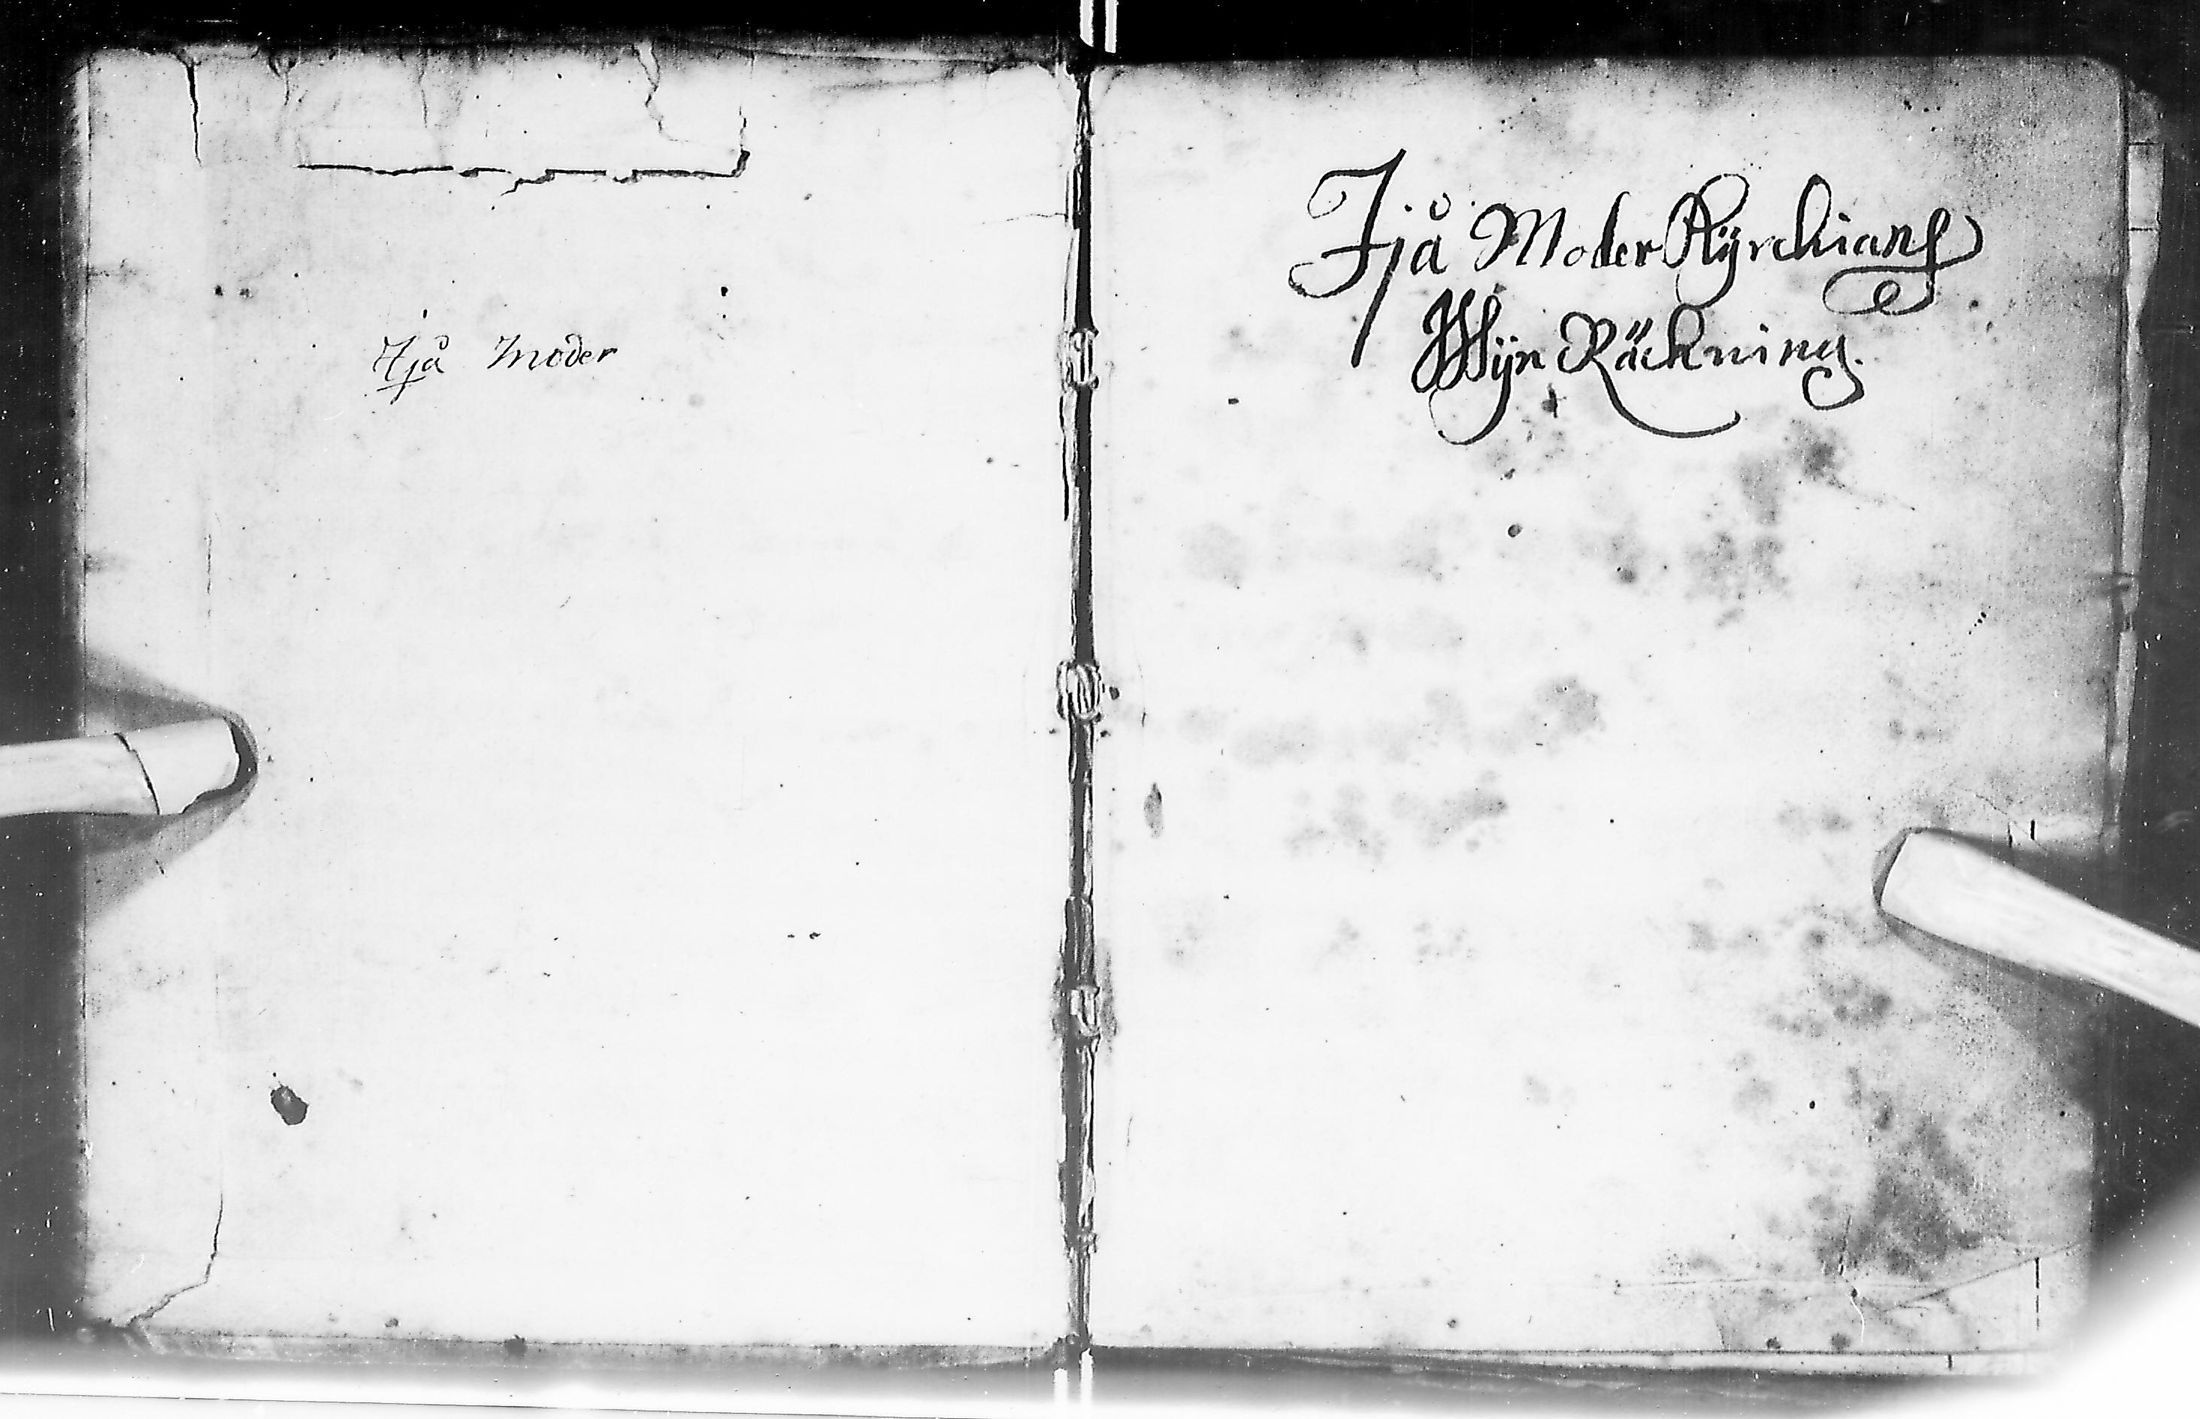 Ijå Moder
Ijå Moder Kyrckians
Wijn Räckning.